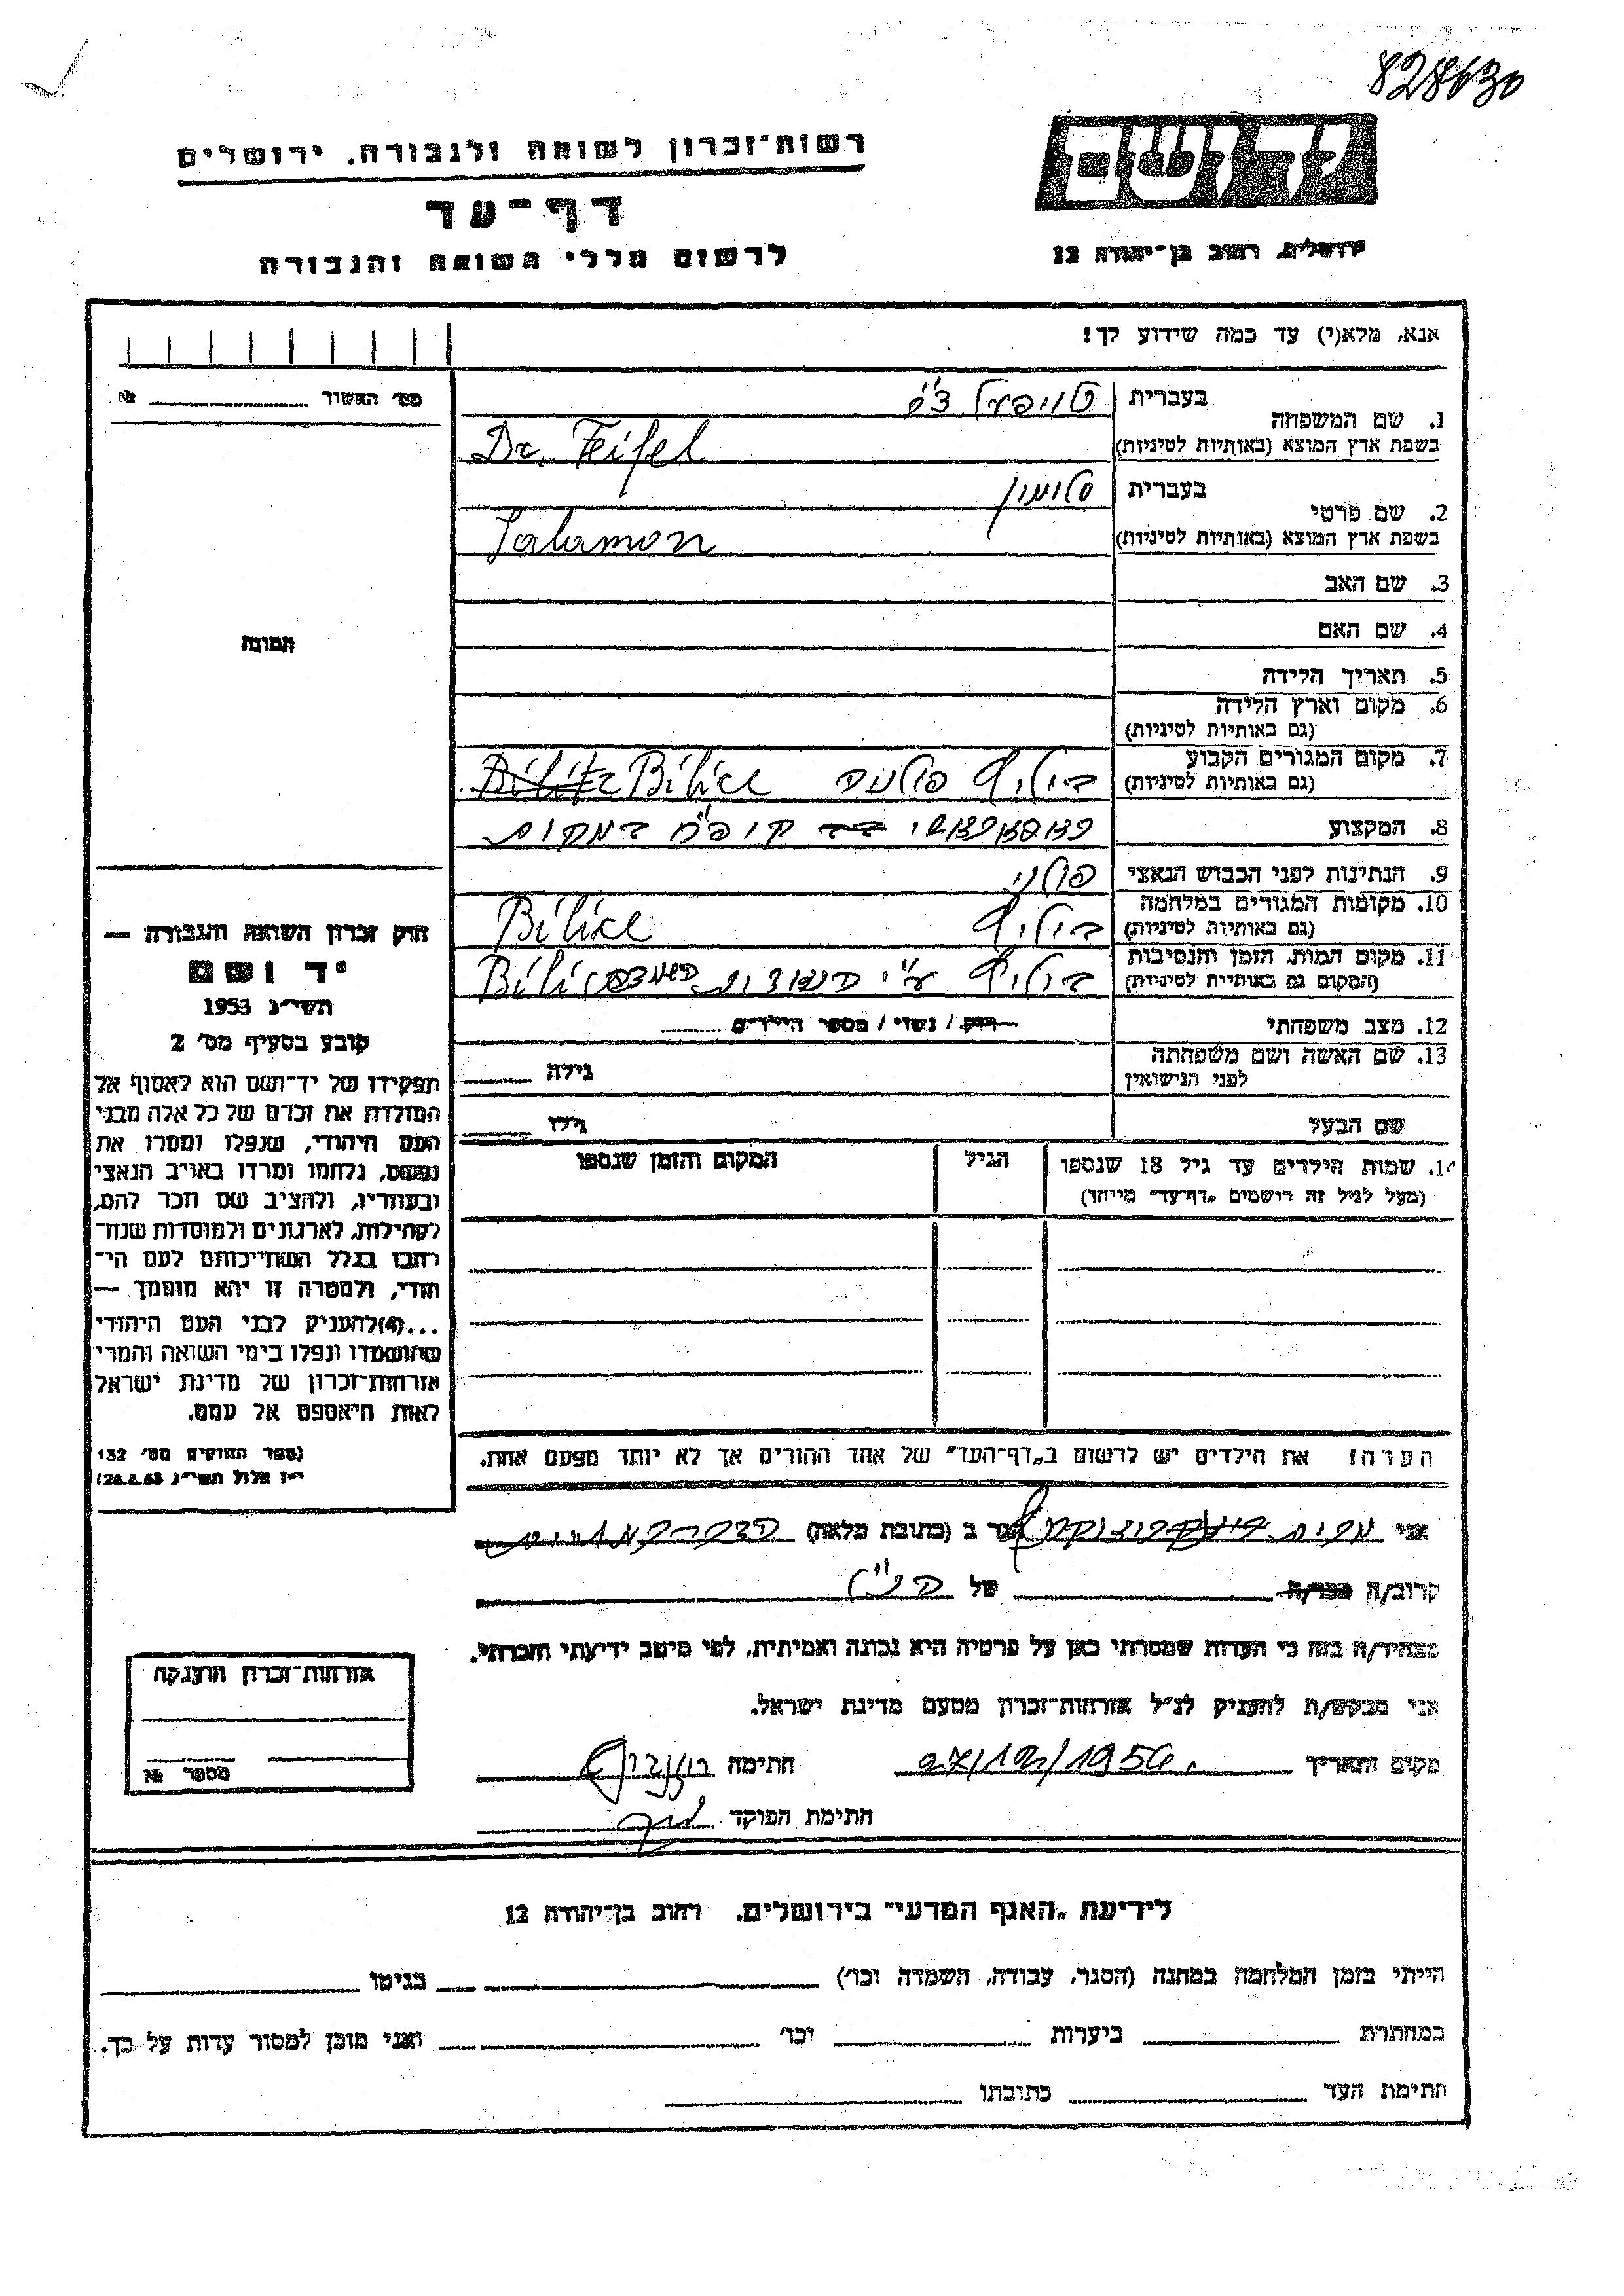 828630
יד ושם
ירושלים, רחוב בן־יהודה 12
רשות־זכרון לשואה ולגבורה, ירושלים
דף־עד
לרשום חללי השואה והגבורה
אנא, מלא(י) עד כמה שידוע לך!
מס׳ האשור № 
תמונה
1. שם המשפחה
בעברית
בשפת ארץ המוצא (באותיות לטיניות) Dr. Feifel
2. שם פרטי
בעברית סלומון
בשפת ארץ המוצא (באותיות לטיניות) Salamon
3. שם האב
4. שם האם
5. תאריך הלידה
6. מקום וארץ הלידה
(גם באותיות לטיניות)
7. מקום המגורים הקבוע
(גם באותיות לטיניות) ביליץ פולניה Bilice
8. המקצוע קופ"ח במקום
9. הנתינות לפני הכבוש הנאצי פולני
10. מקומות המגורים במלחמה
(גם באותיות לטיניות) ביליץ Bilice
11. מקום המות, הזמן והנסיבות
(המקום גם באותיות לטיניות) ביליץ ע"י
12. מצב משפחתי רוק / נשוי / מספר הילדים
13. שם האשה ושם משפחתה
לפני הנישואין גילה
שם הבעל גילו
14. שמות הילדים עד גיל 18 שנספו הגיל המקום והזמן שנספו
(מעל לגיל זה רושמים „דף־עד” מיוחד)
הערה! את הילדים יש לרשום ב„דף־העד” של אחד ההורים אך לא יותר מפעם אחת.
חוק זכרון השואה והגבורה —
יד ושם
תשי״ג 1953
קובע בסעיף מס׳ 2
תפקידו של יד־ושם הוא לאסוף אל
המולדת את זכרם של כל אלה מבני
העם היהודי, שנפלו ומסרו את
נפשם, נלחמו ומרדו באויב הנאצי
ובעוזריו, ולהציב שם וזכר להם,
לקהילות, לארגונים ולמוסדות שנח־
רבו בגלל השתייכותם לעם הי־
הודי, ולמטרה זו יהא מוסמך —
...(4) להעניק לבני העם היהודי
שהושמדו ונפלו בימי השואה והמרי
אזרחות־זכרון של מדינת ישראל
לאות היאספם אל עמם.
(ספר החוקים מס׳ 132
י״ז אלול תשי״ג 28.8.53)
אני הגר ב (כתובת מלאה)
קרוב/ה מכר/ה של הנ"ל
מצהיר/ה בזה כי העדות שמסרתי כאן על פרטיה היא נכונה ואמיתית, לפי מיטב ידיעתי והכרתי.
אני מבקש/ת להעניק לנ״ל אזרחות־זכרון מטעם מדינת ישראל.
מקום ותאריך 27/12/1956. חתימה
חתימת הפוקד
אזרחות־זכרון הוענקה
מספר №
לידיעת „האגף המדעי” בירושלים, רחוב בן־יהודה 12
הייתי בזמן המלחמה במחנה (הסגר, עבודה, השמדה וכו׳) בגיטו
במחתרת ביערות וכו׳ ואני מוכן למסור עדות על כך.
חתימת העד כתובתו